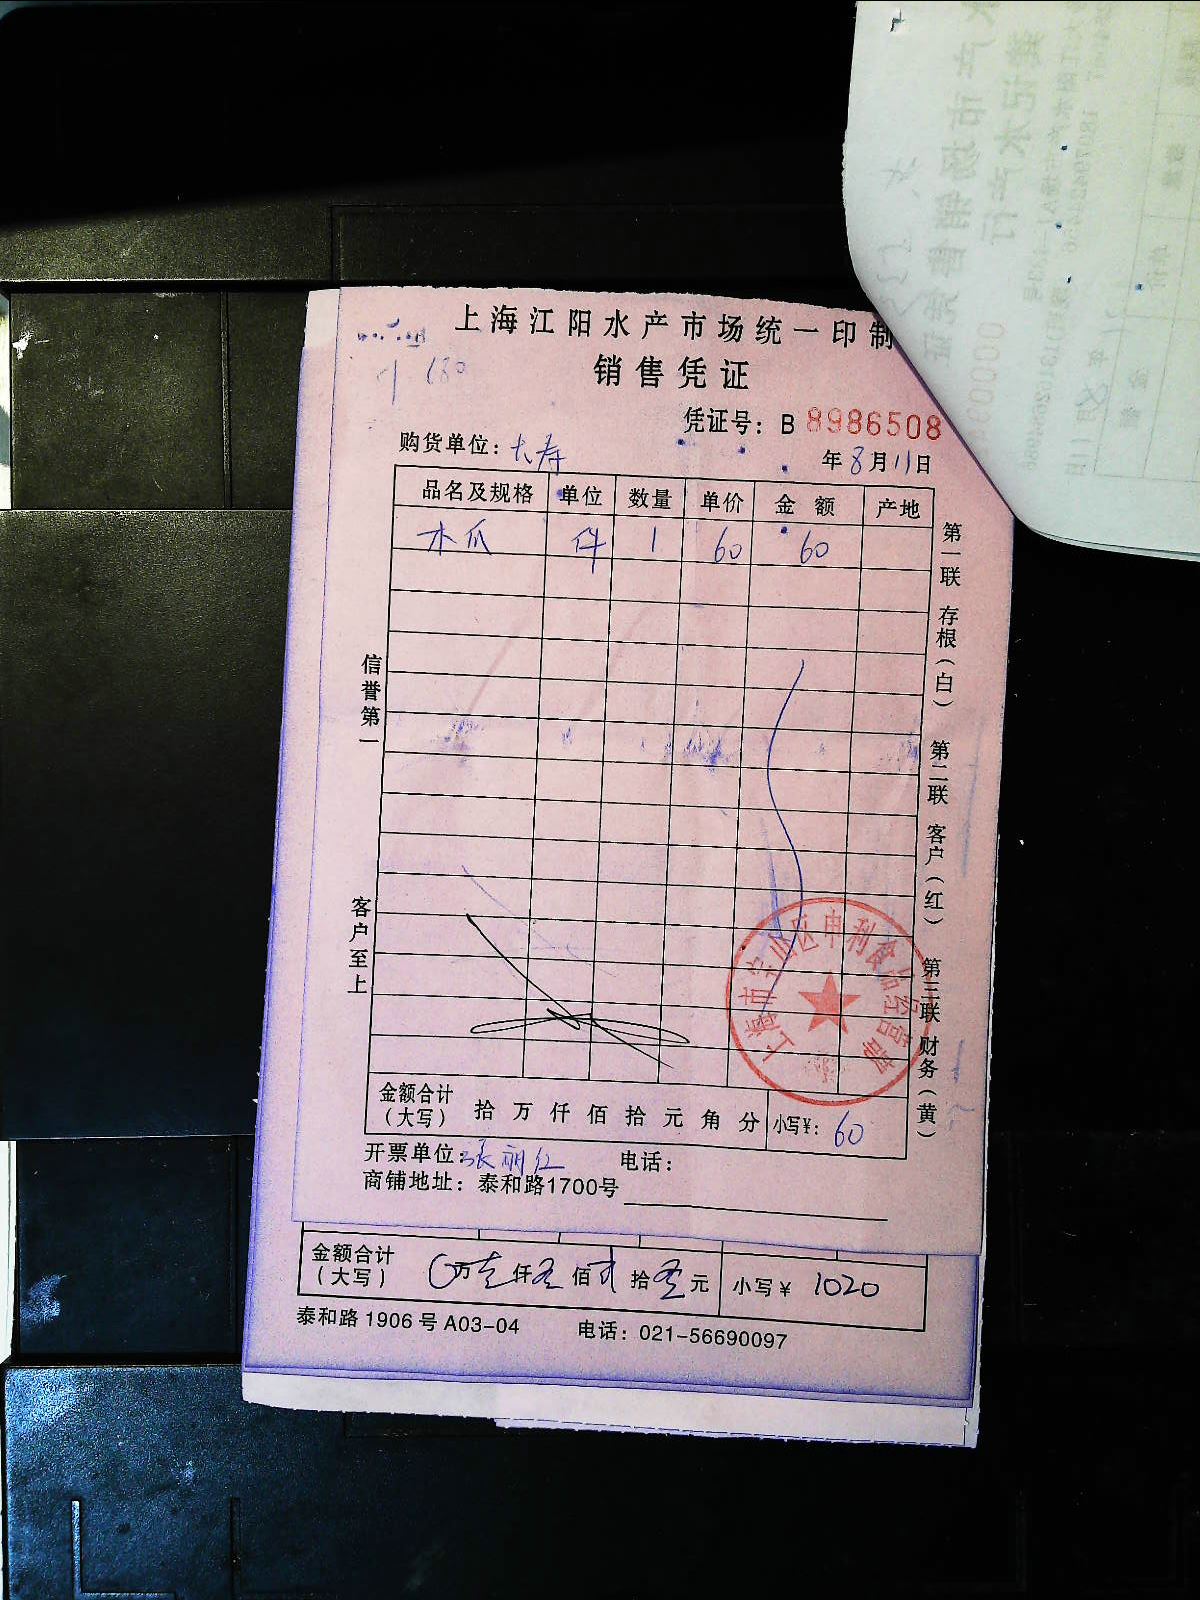 上海江阳水产市场统一印制
销售凭证
680
凭证号：B 8986508
购货单位：大寿
年8月11日
品名及规格 单位 数量 单价 金额 产地
木瓜 件 1 60 60
信誉第一
客户至上
第一联 存根（白） 第二联 客户（红） 第三联 财务（黄）
上海市宝山区申利食品经营部
金额合计（大写） 拾 万 仟 佰 拾 元 角 分 小写¥：60
开票单位：张丽红 电话：
商铺地址：泰和路1700号
金额合计（大写） 万 仟 佰 拾 元 小写¥ 1020
泰和路1906号A03-04 电话：021-56690097